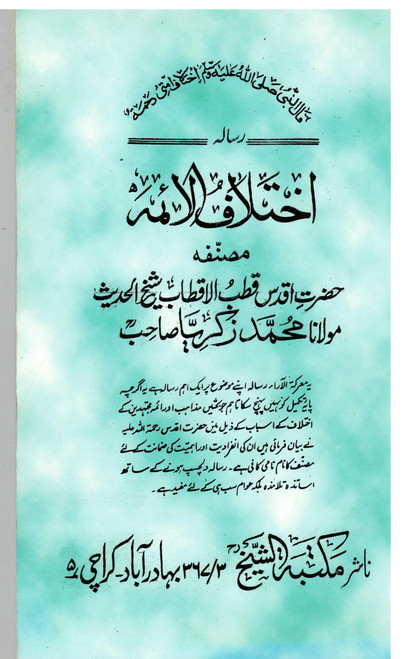 قال النبی صلی اللہ علیہ وسلم اختلاف امتی رحمۃ
رسالہ
اختلاف الائمہ
مصنّفہ
حضرت اقدس قطب الاقطاب شیخ الحدیث
مولانا محمد زکریا صاحبؒ
یہ معرکۃ الآراء رسالہ اپنے موضوع پر ایک اہم رسالہ ہے یہ اگرچہ
پایۂ تکمیل کو نہیں پہنچ سکا تاہم جو بحثیں مذاہب اور ائمہ مجتہدین کے
اختلاف کے اسباب کے ذیل میں حضرت اقدس رحمۃ اللہ علیہ
نے بیان فرمائی ہیں ان کی انفرادیت اور اہمیت کی ضمانت کے لئے
مصنف کا نام نامی کافی ہے۔ رسالہ دلچسپ ہونے کے ساتھ
اساتذہ تلامذہ بلکہ عوام سب ہی کے لئے مفید ہے۔
ناشر مکتبۃ الشیخؒ ۳۶۷/۳ بہادر آباد۔ کراچی ۵